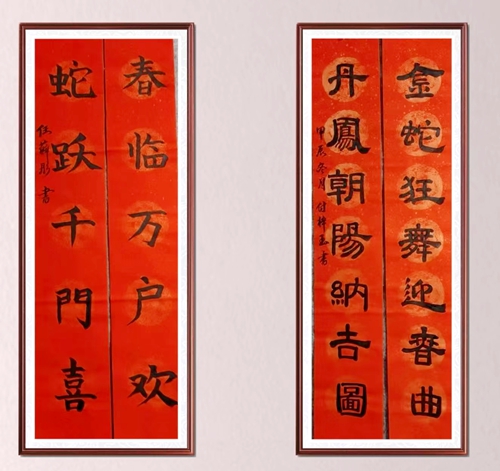 春临万户欢
蛇跃千門喜
金蛇狂舞迎春曲
丹鳳朝陽納吉圖
甲辰冬月